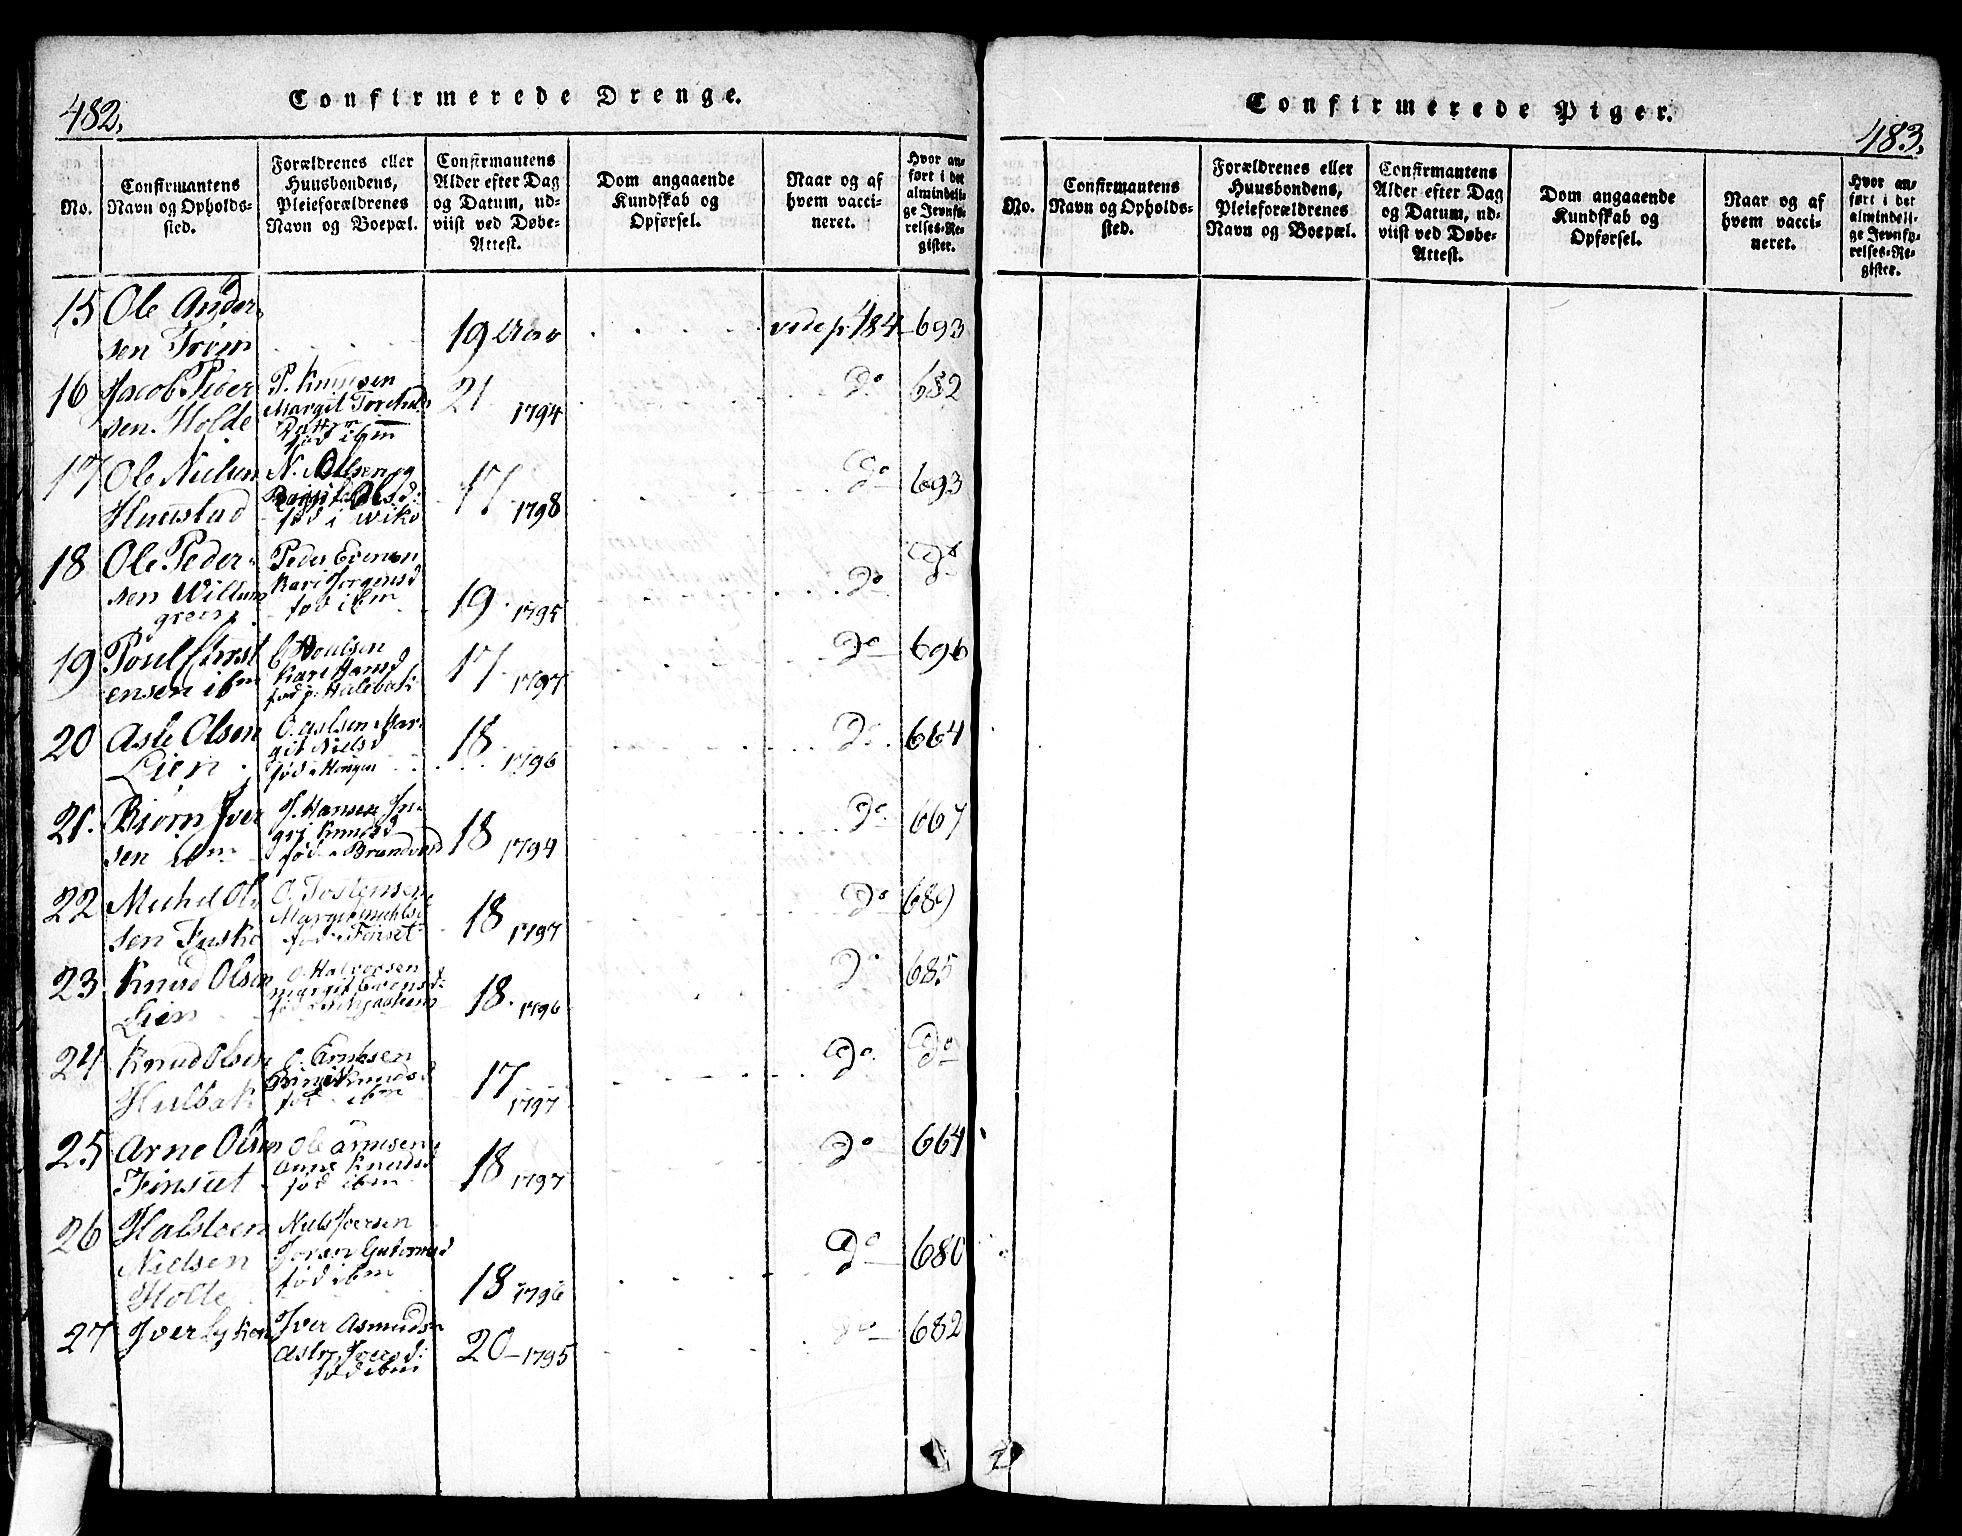 482.
Confirmerede Drenge.
No.
Confirmantens
Navn og Opholds-
sted.
Forældrenes eller
Huusbondens,
Pleieforældrenes
Navn og Boepæl.
Confirmantens
Alder efter Dag
og Datum, ud-
viist ved Døbe-
Attest.
Dom angaaende
Kundskab og
Opførsel.
Naar og af
hvem vacci-
neret.
Hvor an-
ført i det
almindeli-
ge Jevnfø-
relses-Re-
gister.
15 Ole Ander
sen
19 Aar
vide p. 484
693
16 Jacob Peder
sen Holde
P. Knudsen
Margit
fød ibm
21 1794
do
682
17 Ole Nielsen
N. Olsen og
fød i
17 1798
do
693
18 Ole Peder-
sen
Peder Evensen
Kari Jørgensd
fød ibm
19. 1795
do
do
19 Poul Christ
ensen ibm
C. Poulsen
Kari Hansd
fød p. Hulebak
17 1797
do
696
20 Asle Olsen
Lien
O. Aslsen Mar
git Nielsd
fød
18 1796
do
664
21. Biørn Iver
sen ibm
J. Hansen In
gri Knudsd
fød Brandvold
18 1794
do
667
22 Michel Ol
sen
O. Tostensen
Margit Michlsd
fød
18 1797
do
689
23 Knud Olsen
Lien
O. Halvorsen
Margit Evensd:
fød
18. 1796
do
685
24 Knud Olsen
Hulbak
O. Arnesen
Birgit Knudsd
fød ibm
17 1797
do
do
25 Arne Olsen
Finset
Ole Arnesen
Anne Knudsd
fød ibm
18 1797
do
664
26 Halsteen
Nielsen
Holte
Niels Iversen
Joran Guttormsd
fød ibm
18 1796
do
680
27 Iver
Iver Asmuds
Astri Iversd:
fød ibm
20 - 1795
do
682
Confirmerede Piger.
483.
No.
Confirmantens
Navn og Opholds-
sted.
Forældrenes eller
Huusbondens,
Pleieforældrenes
Navn og Boepæl.
Confirmantens
Alder efter Dag
og Datum, ud-
viist ved Døbe-
Attest.
Dom angaaende
Kundskab og
Opførsel.
Naar og af
hvem vacci-
neret.
Hvor an-
ført i det
almindeli-
ge Jevnfø-
relses-Re-
gister.